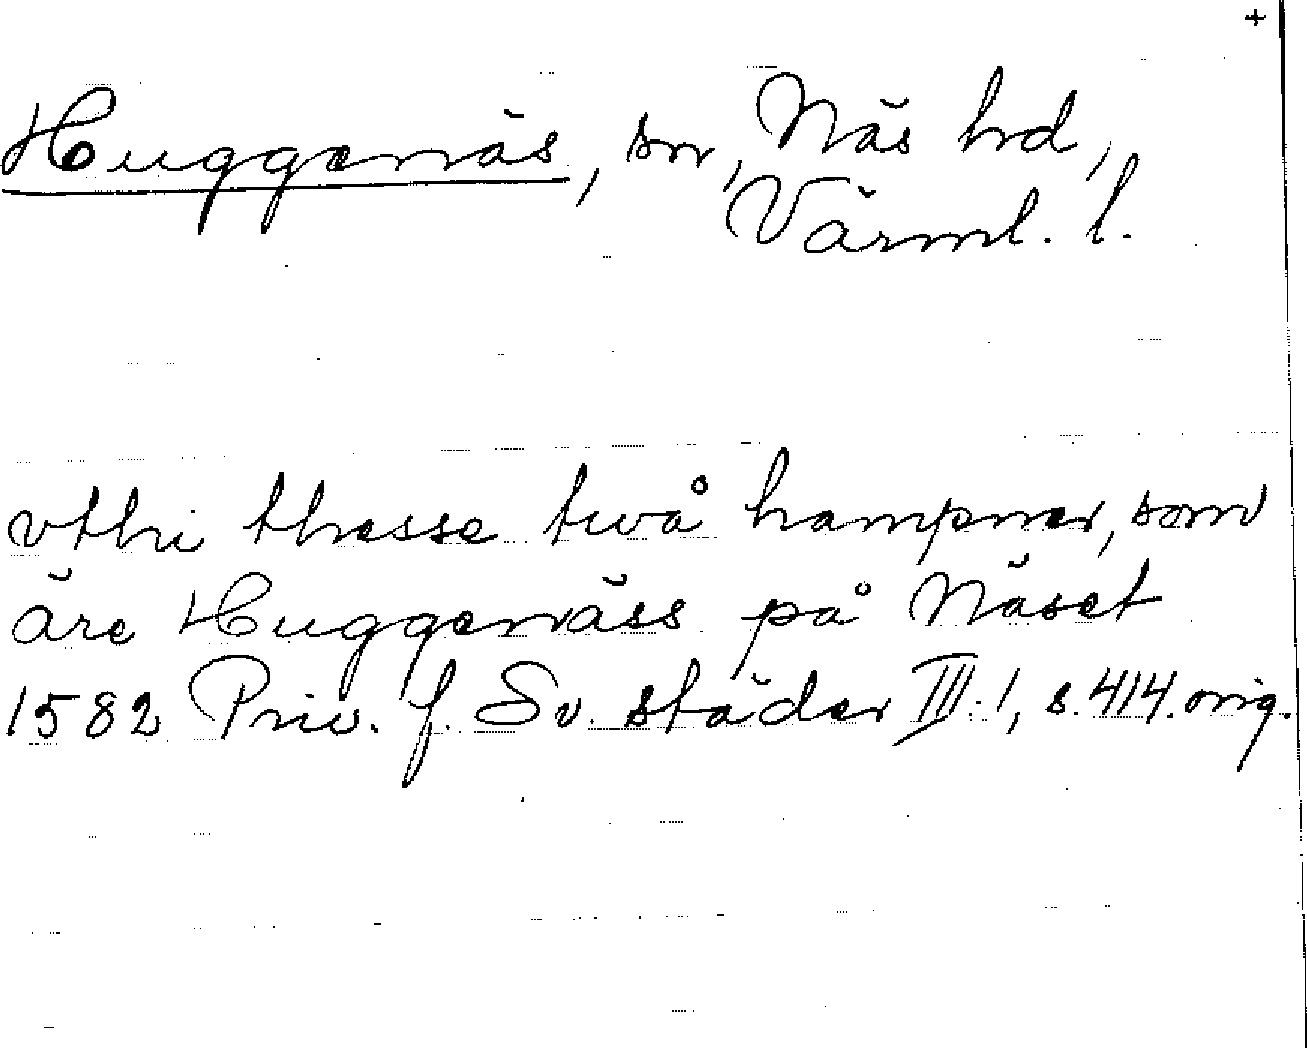 +
Huggenäs, sn, Näs hd,
Värml. l.
vthi thesse twå hampner, som
äre Huggenäss på Näset
1582 Priv. f. Sv. städer III:1, s. 414. orig.